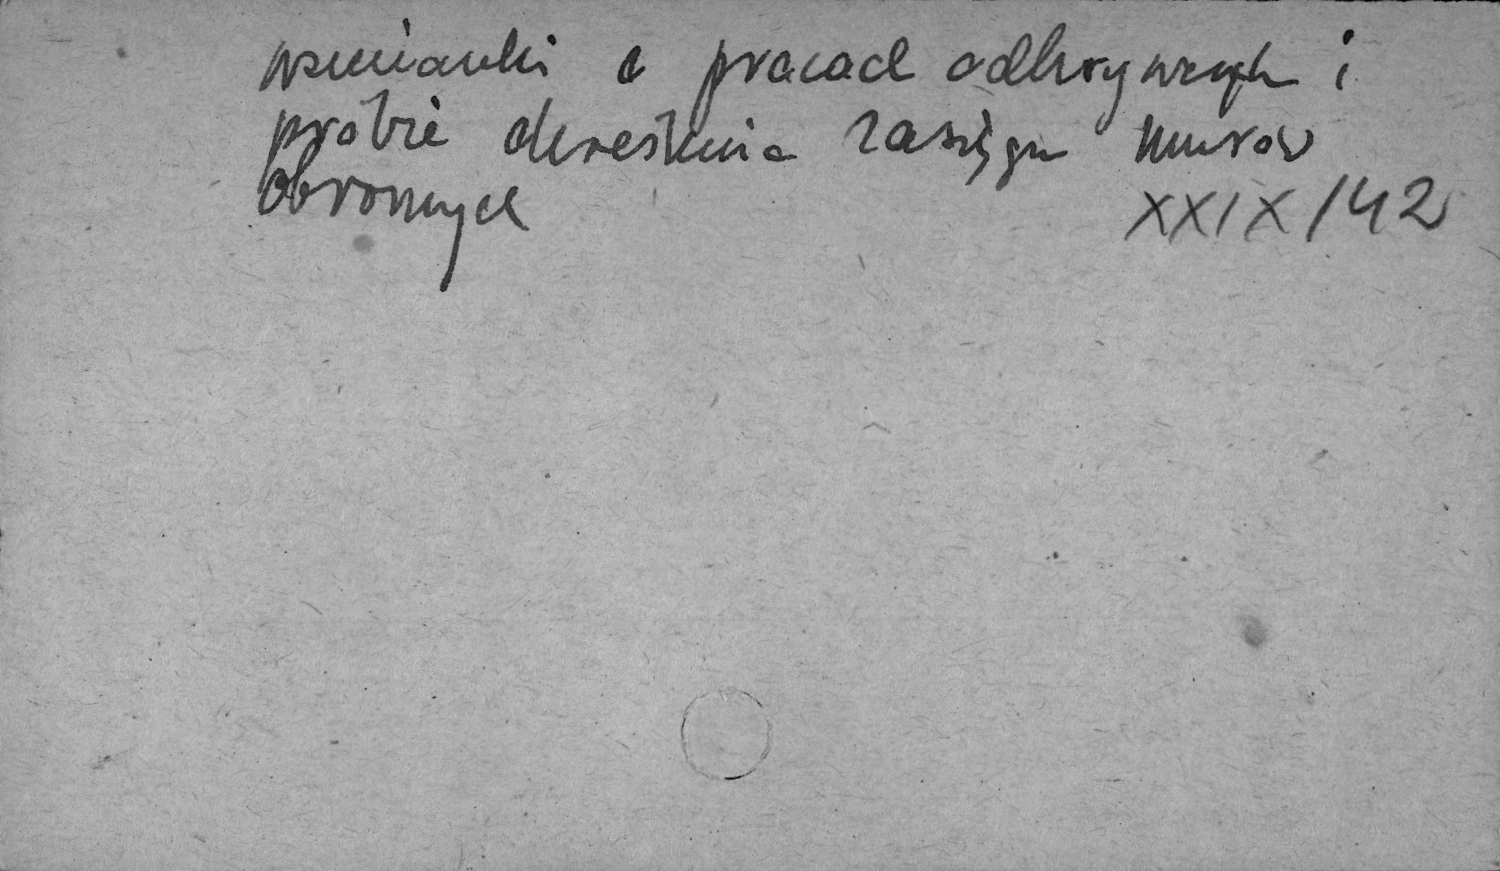 wzmianki o pracach odkrywczych i
próbie określenia zasięgu murów
obronnych
XXIX/42